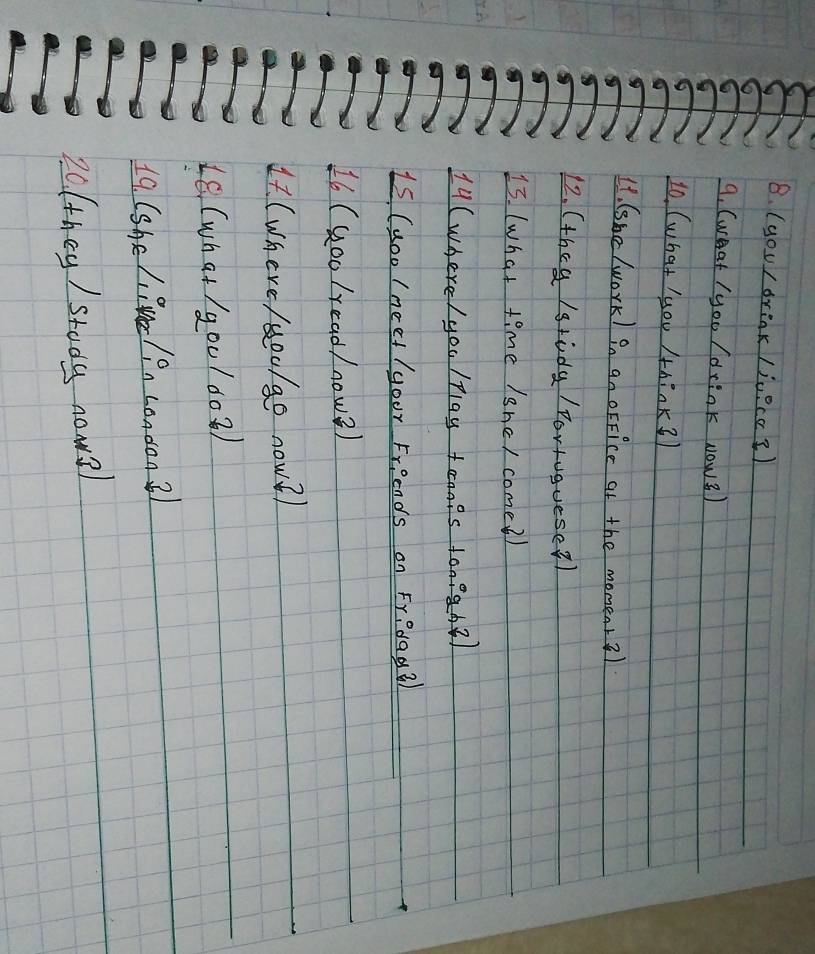 8. (you/drink/juice?)
9. (what/you/drink now?)
10. (what/you/think?)
11. (she/work) in an office at the moment?)
12. (they/study/Portuguese?)
13. (what time/she/come?)
14 (where/you/Play tennis tonigh?)
15. (you/meet/your Friends on Friday?)
16 (you/read/now?)
17 (where/you/go now?)
18 (what/you/do?)
19. (she/live/in London?)
20. (they/Study now?)